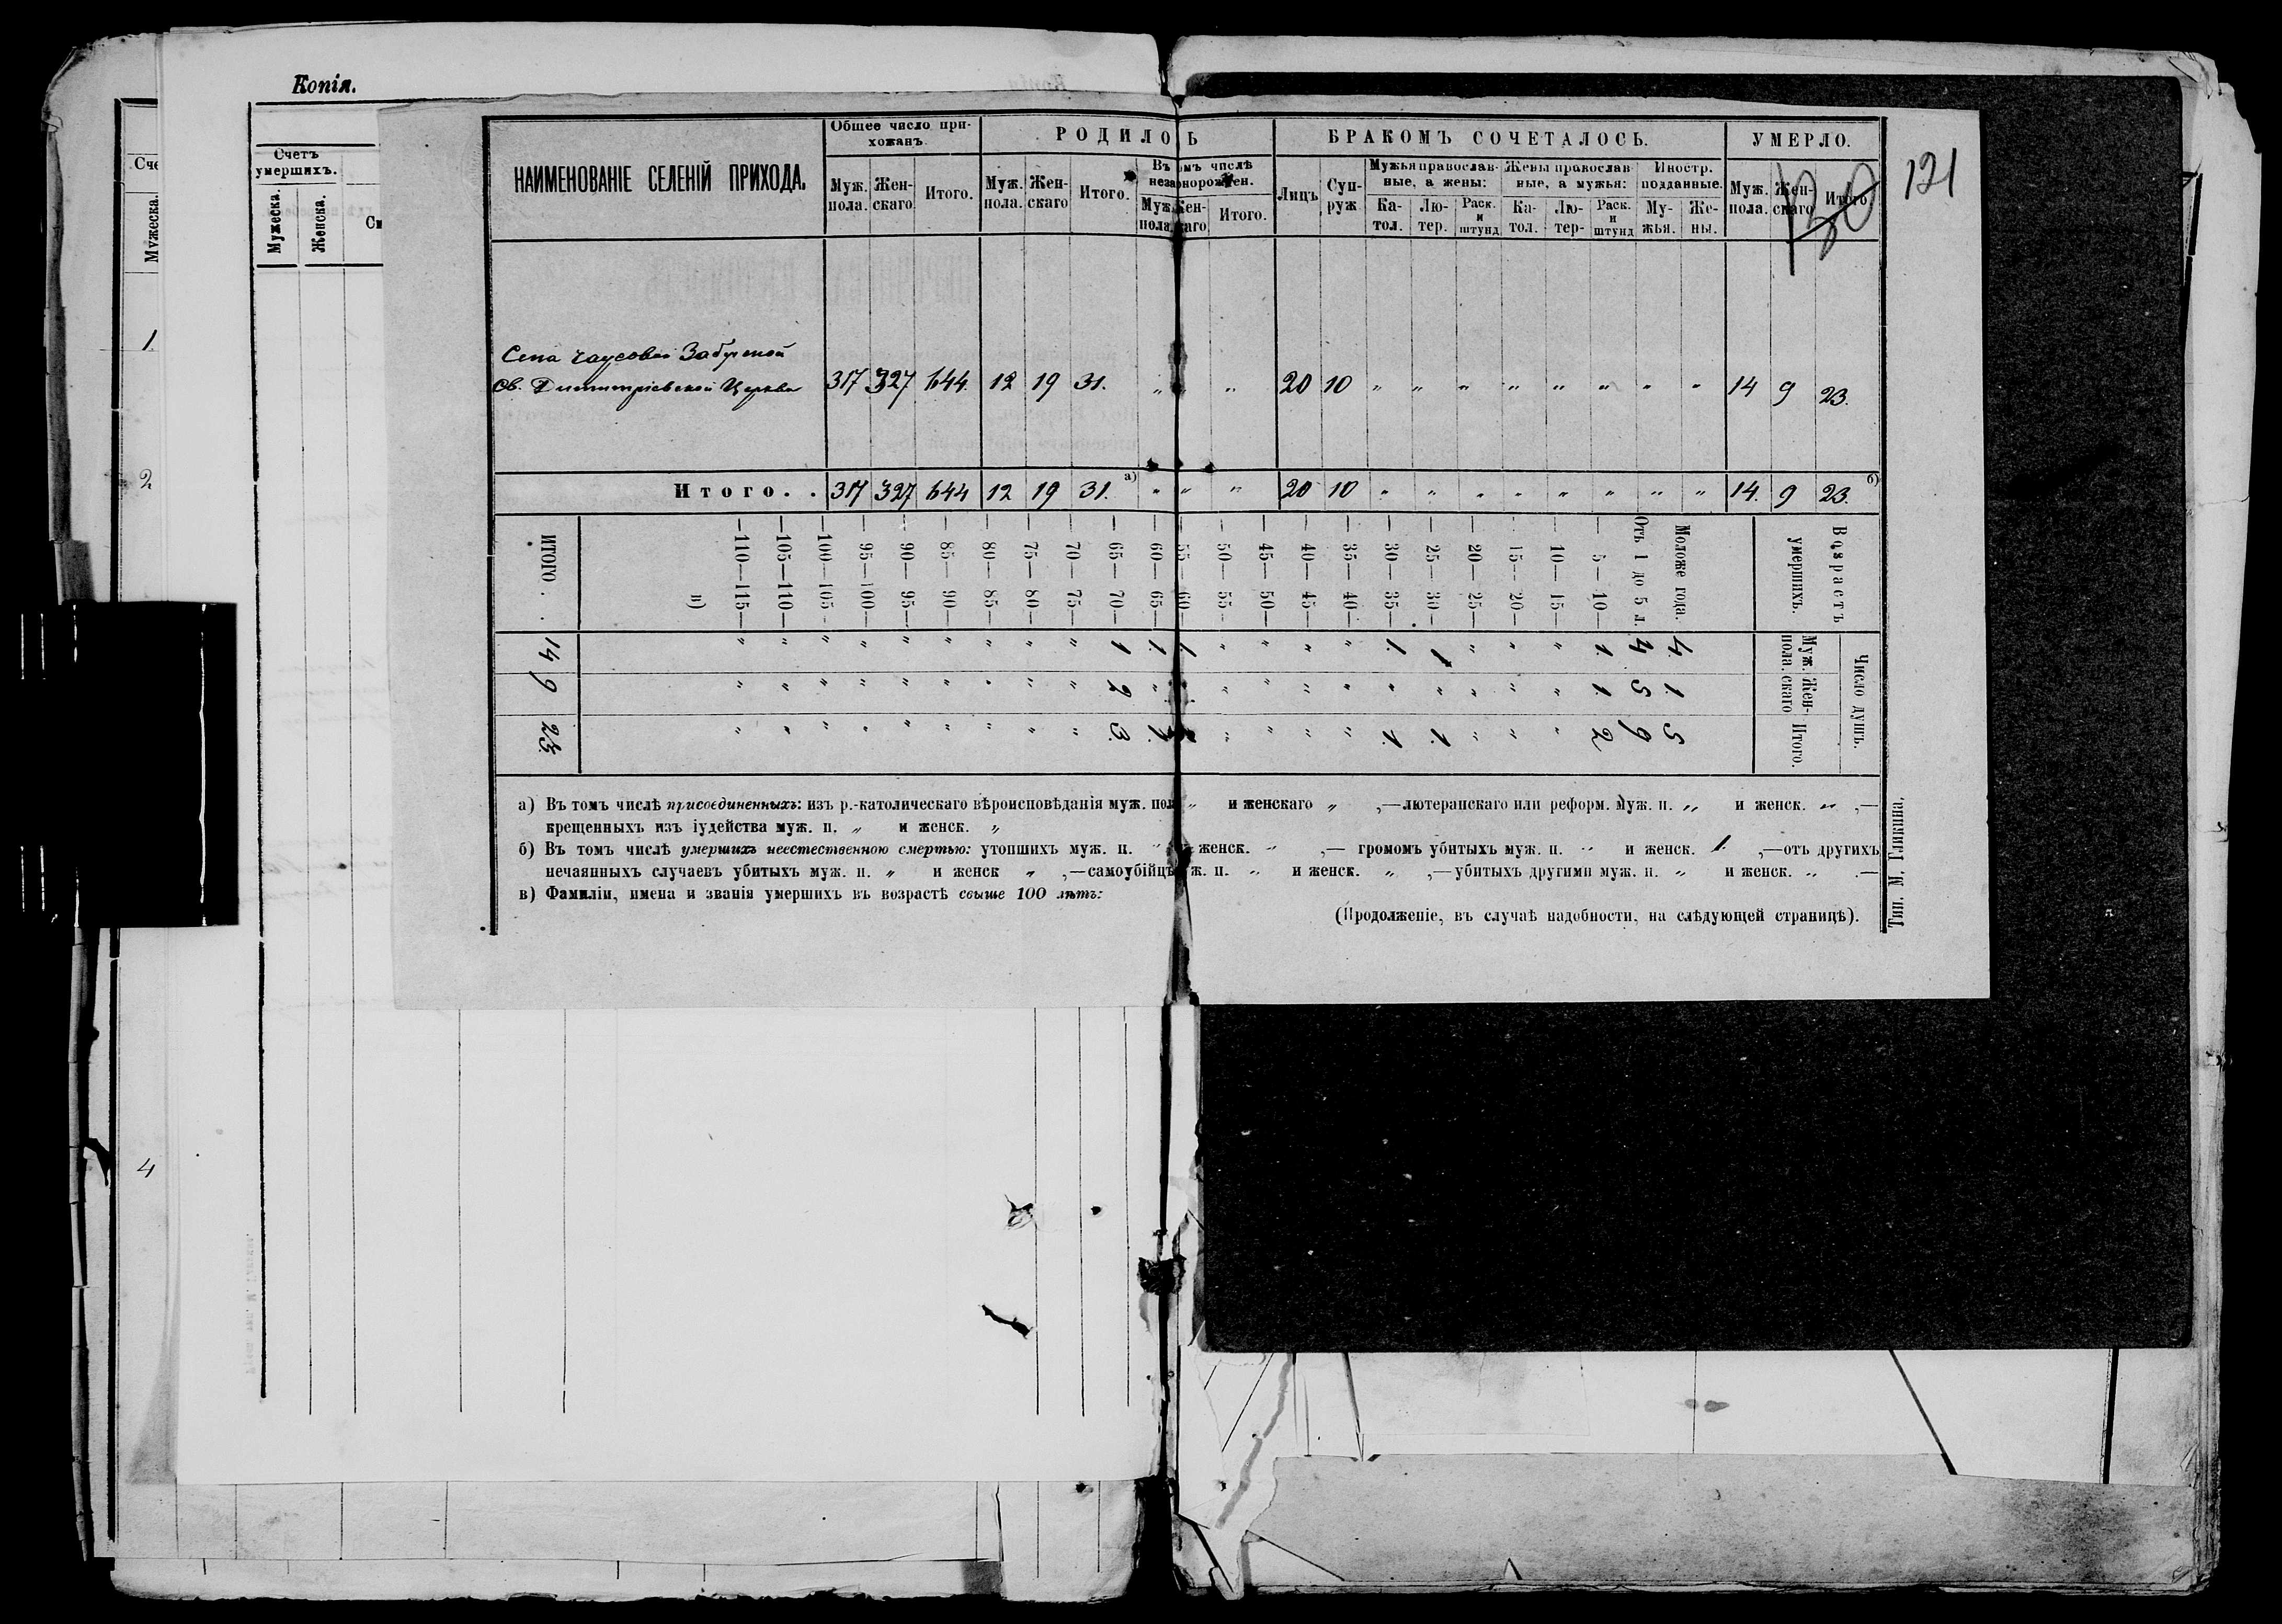 Копія.
Счетъ умершихъ.
Мужеска.
Женска.
Сче
Мужеска.
1.
2
4
121
НАИМЕНОВАНІЕ СЕЛЕНІЙ ПРИХОДА.
Общее число прихожанъ.
Муж. пола. Жен-скаго Итого.
РОДИЛОСЬ
Муж. пола. Жен-скаго Итого.
Муж. пола. Жен-скаго Итого.
БРАКОМЪ СОЧЕТАЛОСЬ.
Лицъ Суп-руж
Мужья православ-ные, а жены:
Ка-тол. Лю-тер. Раск. и штунд
Жены православ-ные, а мужья:
Ка-тол. Лю-тер- Раск. и штунд
Иностр. подданные.
Му-жья. Же-ны.
УМЕРЛО.
Муж. пола. Жен-скаго Итого
Села Чаусова Забугской
Св. Димитріевской Церкви 317 327 644. 12 19 31. „ „ „ 20 10 „ „ „ „ „ „ „ „ 14 9 23.
Итого. . 317 327 644 12 19 31. а) „ „ „ 20 10 „ „ „ „ „ „ „ „ 14. 9 23. б)
Возрастъ умершихъ.
Число душъ.
Муж. пола. Жен-скаго Итого.
Моложе года. 4. 1. 5
Отъ 1 до 5 л. 4 5 9
— 5—10— 1. 1. 2
— 10—15— „ „ „
— 15—20— „ „ „
— 20—25— „ „ „
— 25—30— 1 „ 1.
— 30—35— 1. „ 1.
— 35—40— „ „ „
— 40—45— „ „ „
— 45—50— „ „ „
— 50—55— „ „ „
— 55—60—
— 60—65— 1. „ 1.
— 65—70— 1 2 3.
— 70—75— „ „ „
— 75—80— „ „ „
— 80—85— „ „ „
— 85—90— „ „ „
— 90—95— „ „ „
— 95—100— „ „ „
— 100—105— „ „ „
— 105—110— „ „ „
— 110—115— „ „ „
в)
ИТОГО . . 14 9 23.
а) Въ томъ числѣ присоединенныхъ: изъ р.-католическаго вѣроисповѣданія муж. пол „ и женскаго „ ,—лютеранскаго или реформ. муж. п. „ и женск. „ ,—
крещенныхъ изъ іудейства муж. п. „ и женск. „
б) Въ томъ числѣ умершихъ неестественною смертью: утопшихъ муж. п. „ женск. „ ,— громомъ убитыхъ муж. п. „ и женск. 1. ,—отъ другихъ
нечаянныхъ случаевъ убитыхъ муж. п. „ и женск „ ,—самоубійцъ ж. п. „ и женск. „ ,—убитыхъ другими муж. п. „ и женск. „ .—
в) Фамиліи, имена и званія умершихъ въ возрастѣ свыше 100 лѣтъ:
(Продолженіе, въ случаѣ надобности, на слѣдующей страницѣ).
Тип. М. Гликина.